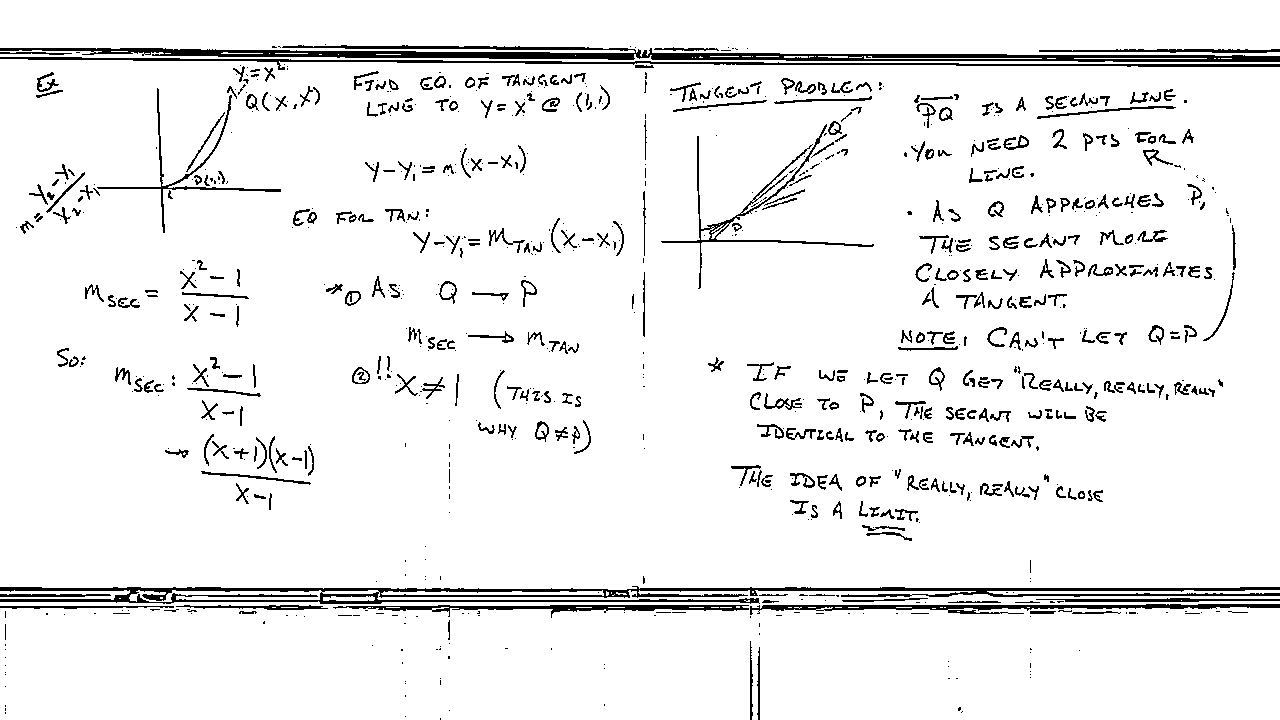 Ex
y=x²
Q(x,x²)
P(1,1)
m = y₂-y₁ / x₂-x₁
FIND EQ. OF TANGENT
LINE TO y=x² @ (1,1)
y-y₁=m(x-x₁)
EQ FOR TAN:
y-y₁=m_TAN(x-x₁)
m_SEC = x²-1 / x-1
So:
m_SEC: x²-1 / x-1
→ (x+1)(x-1) / x-1
* ① AS Q → P
m_SEC → m_TAN
② !! x≠1 (THIS IS
WHY Q≠P)
TANGENT PROBLEM:
Q
P
PQ IS A SECANT LINE.
· YOU NEED 2 PTS FOR A
LINE.
· AS Q APPROACHES P,
THE SECANT MORE
CLOSELY APPROXIMATES
A TANGENT.
NOTE: CAN'T LET Q=P
* IF WE LET Q GET "REALLY, REALLY, REALLY"
CLOSE TO P, THE SECANT WILL BE
IDENTICAL TO THE TANGENT.
THE IDEA OF "REALLY, REALLY" CLOSE
IS A LIMIT.